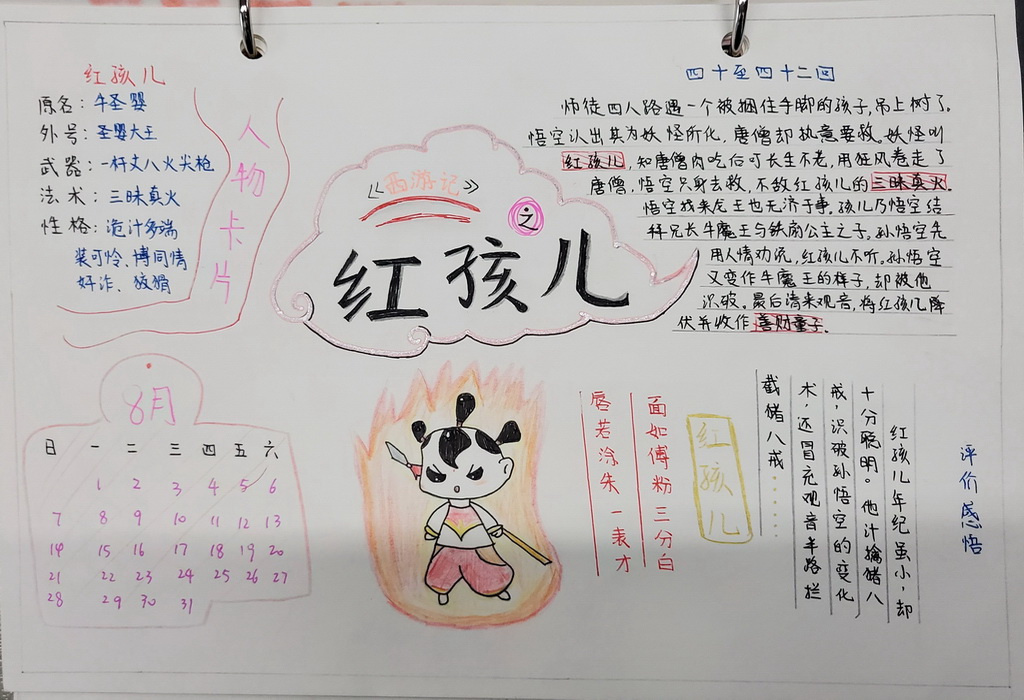 红孩儿
原名：牛圣婴
外号：圣婴大王
武器：一杆丈八火尖枪
法术：三昧真火
性格：诡计多端
装可怜、博同情
奸诈、狡猾
人物卡片
《西游记》
之
红孩儿
四十至四十二回
师徒四人路遇一个被捆住手脚的孩子，吊上树了。
悟空认出其为妖怪所化，唐僧却执意要救。妖怪叫
红孩儿，知唐僧肉吃后可长生不老，用狂风卷走了
唐僧，悟空只身去救，不敌红孩儿的三昧真火。
悟空找来龙王也无济于事。孩儿乃悟空结
拜兄长牛魔王与铁扇公主之子。孙悟空先
用人情劝说，红孩儿不听。孙悟空
又变作牛魔王的样子，却被他
识破。最后请来观音，将红孩儿降
伏并收作善财童子。
8月
日 一 二 三 四 五 六
1 2 3 4 5 6
7 8 9 10 11 12 13
14 15 16 17 18 19 20
21 22 23 24 25 26 27
28 29 30 31
评价感悟
红孩儿年纪虽小，却
十分聪明。他计擒猪八
戒，识破孙悟空的变化
术，还冒充观音半路拦
截猪八戒……
红孩儿
面如傅粉三分白
唇若涂朱一表才